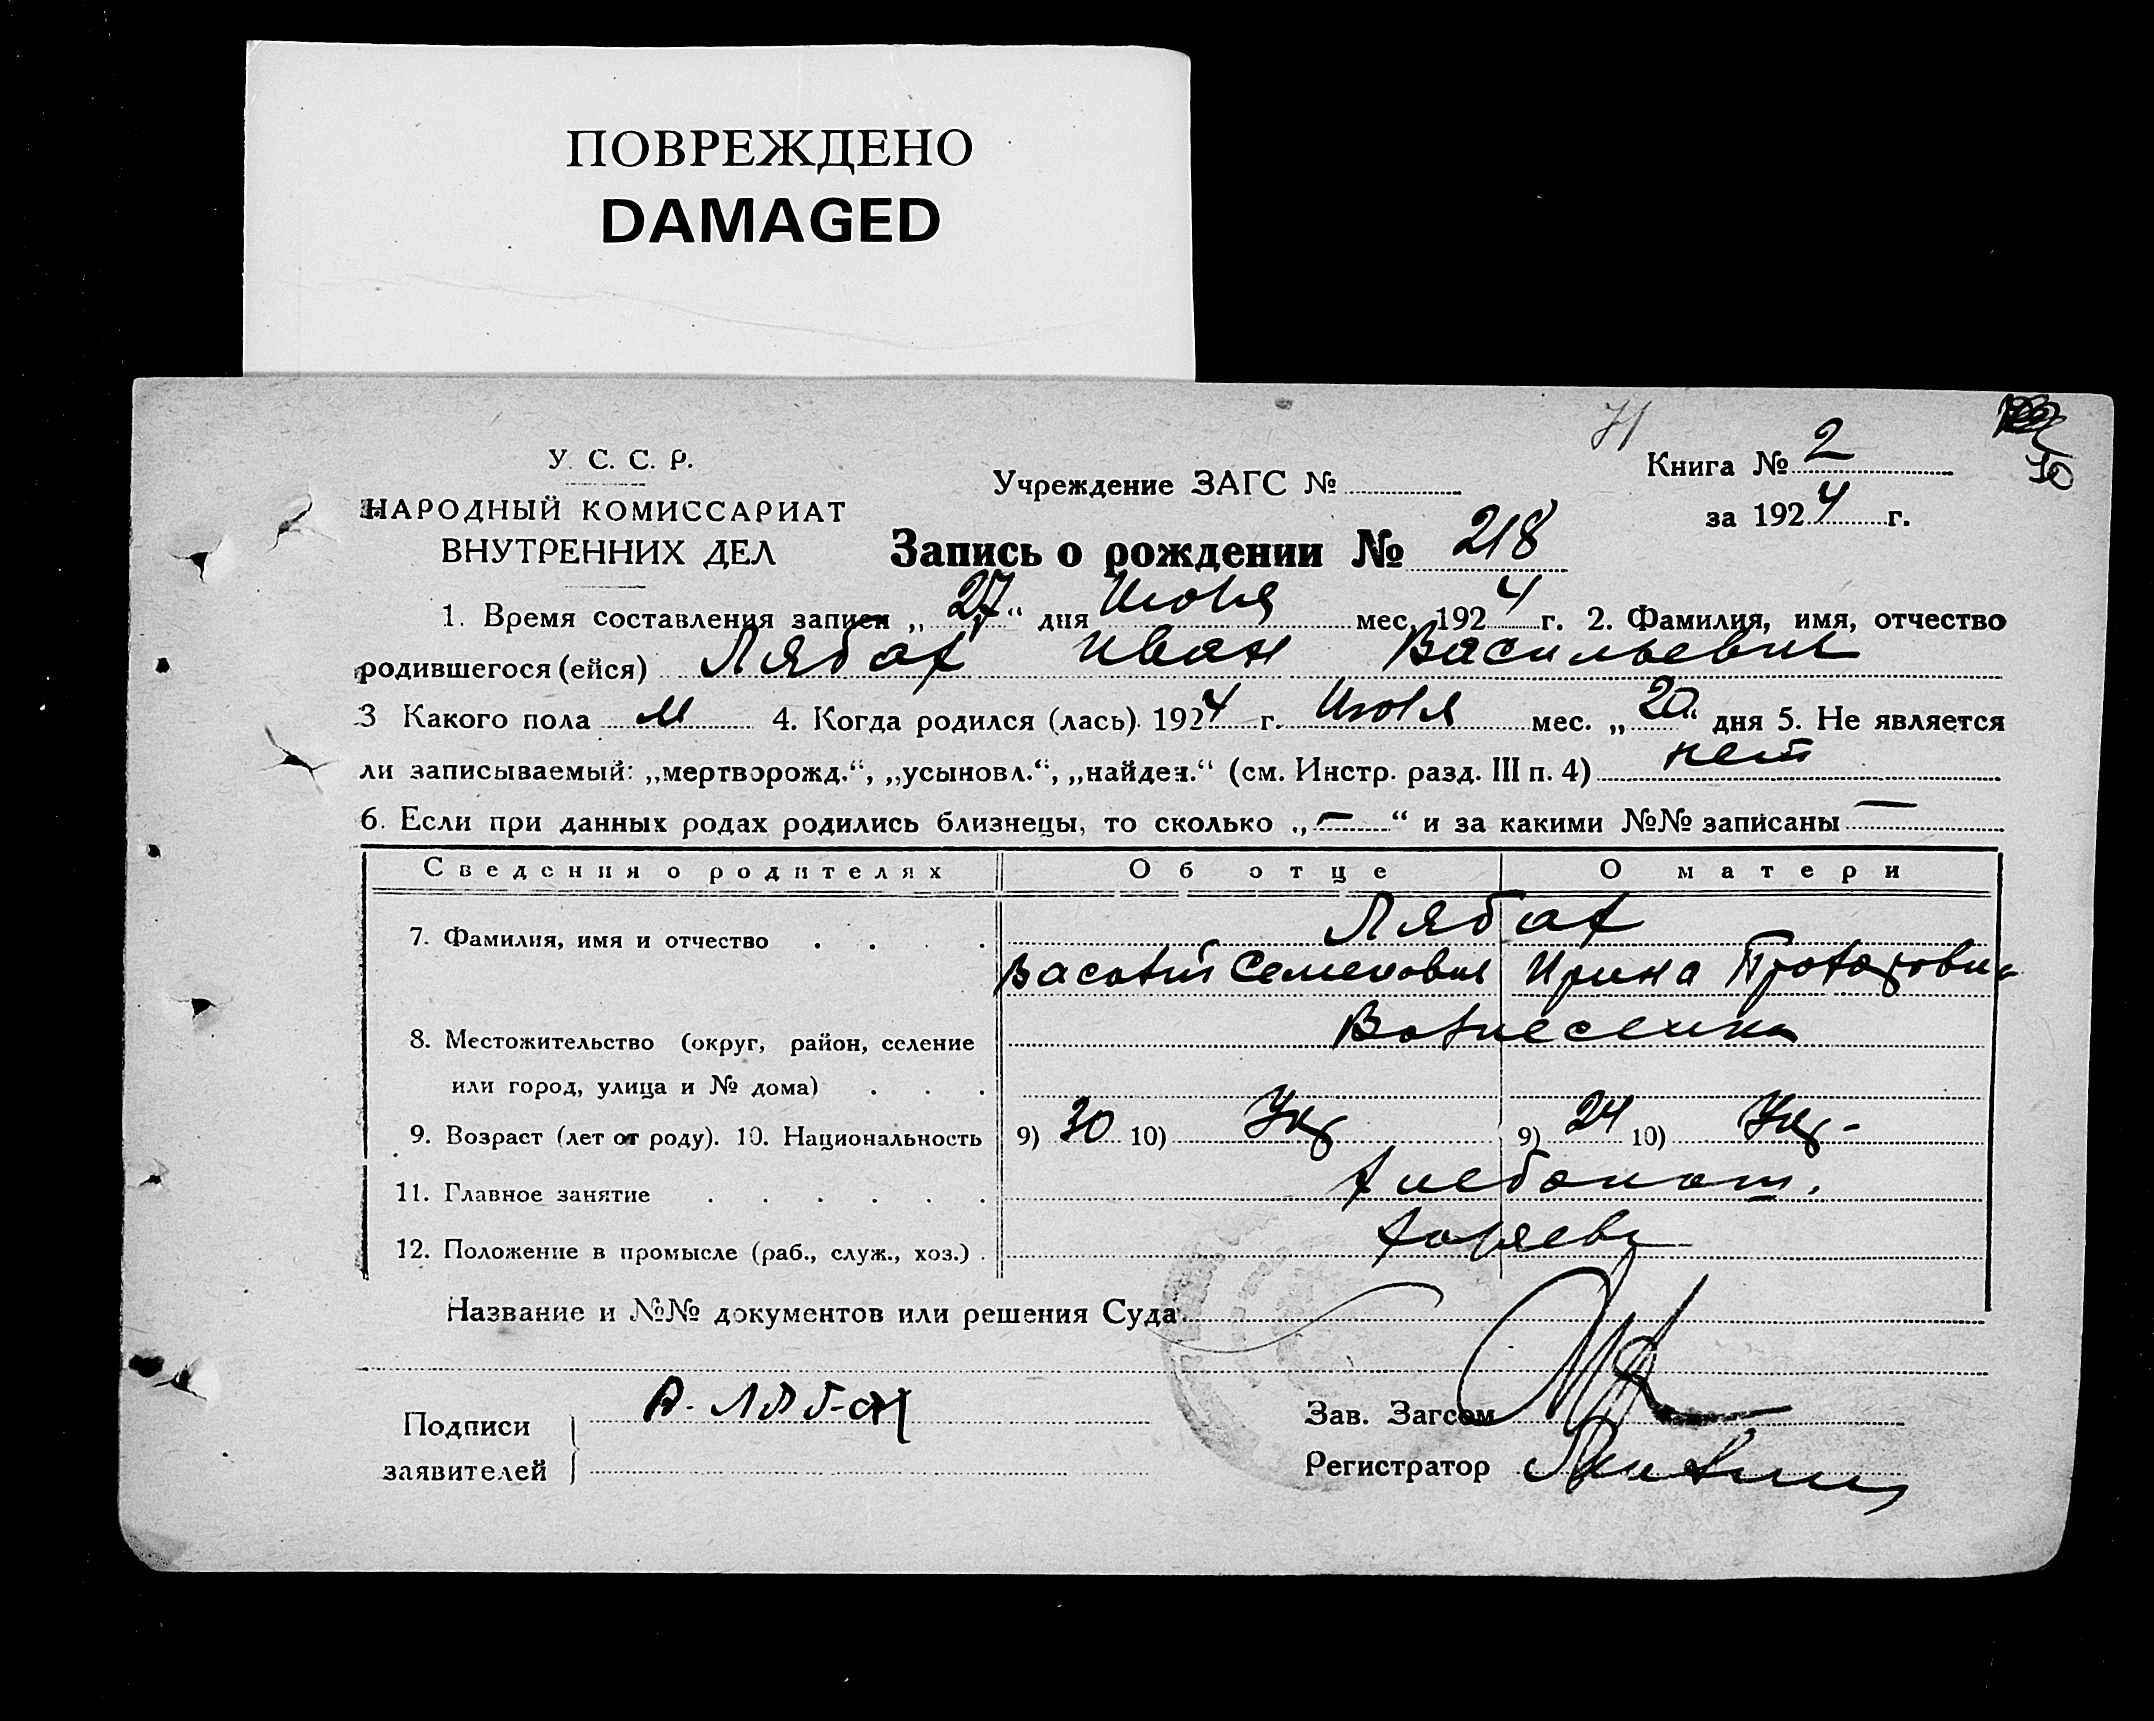 ПОВРЕЖДЕНО
DAMAGED
71
50
У. С. С. Р.
НАРОДНЫЙ КОМИССАРИАТ
ВНУТРЕННИХ ДЕЛ
Учреждение ЗАГС №
Книга № 2
за 1924 г.
Запись о рождении № 218
1. Время составления записи „27“ дня Июля мес. 1924 г. 2. Фамилия, имя, отчество
родившегося (ейся) Лябах Иван Васильевич
3 Какого пола м 4. Когда родился (лась). 1924 г. Июля мес. „20“ дня 5. Не является
ли записываемый: „мертворожд.“, „усыновл.“, „найден.“ (см. Инстр. разд. III п. 4) нет
6. Если при данных родах родились близнецы, то сколько „—“ и за какими №№ записаны —
Сведения о родителях Об отце О матери
7. Фамилия, имя и отчество . . . . Лябах
Василий Семенович Ирина
8. Местожительство (округ, район, селение
или город, улица и № дома) . . .
9. Возраст (лет от роду). 10. Национальность 9) 30 10) Укр 9) 24 10) Укр-
11. Главное занятие . . . . . . Хлебопаш.
12. Положение в промысле (раб., служ., хоз.) . хозяева
Название и №№ документов или решения Суда
Подписи
заявителей
Зав. Загсом
Регистратор